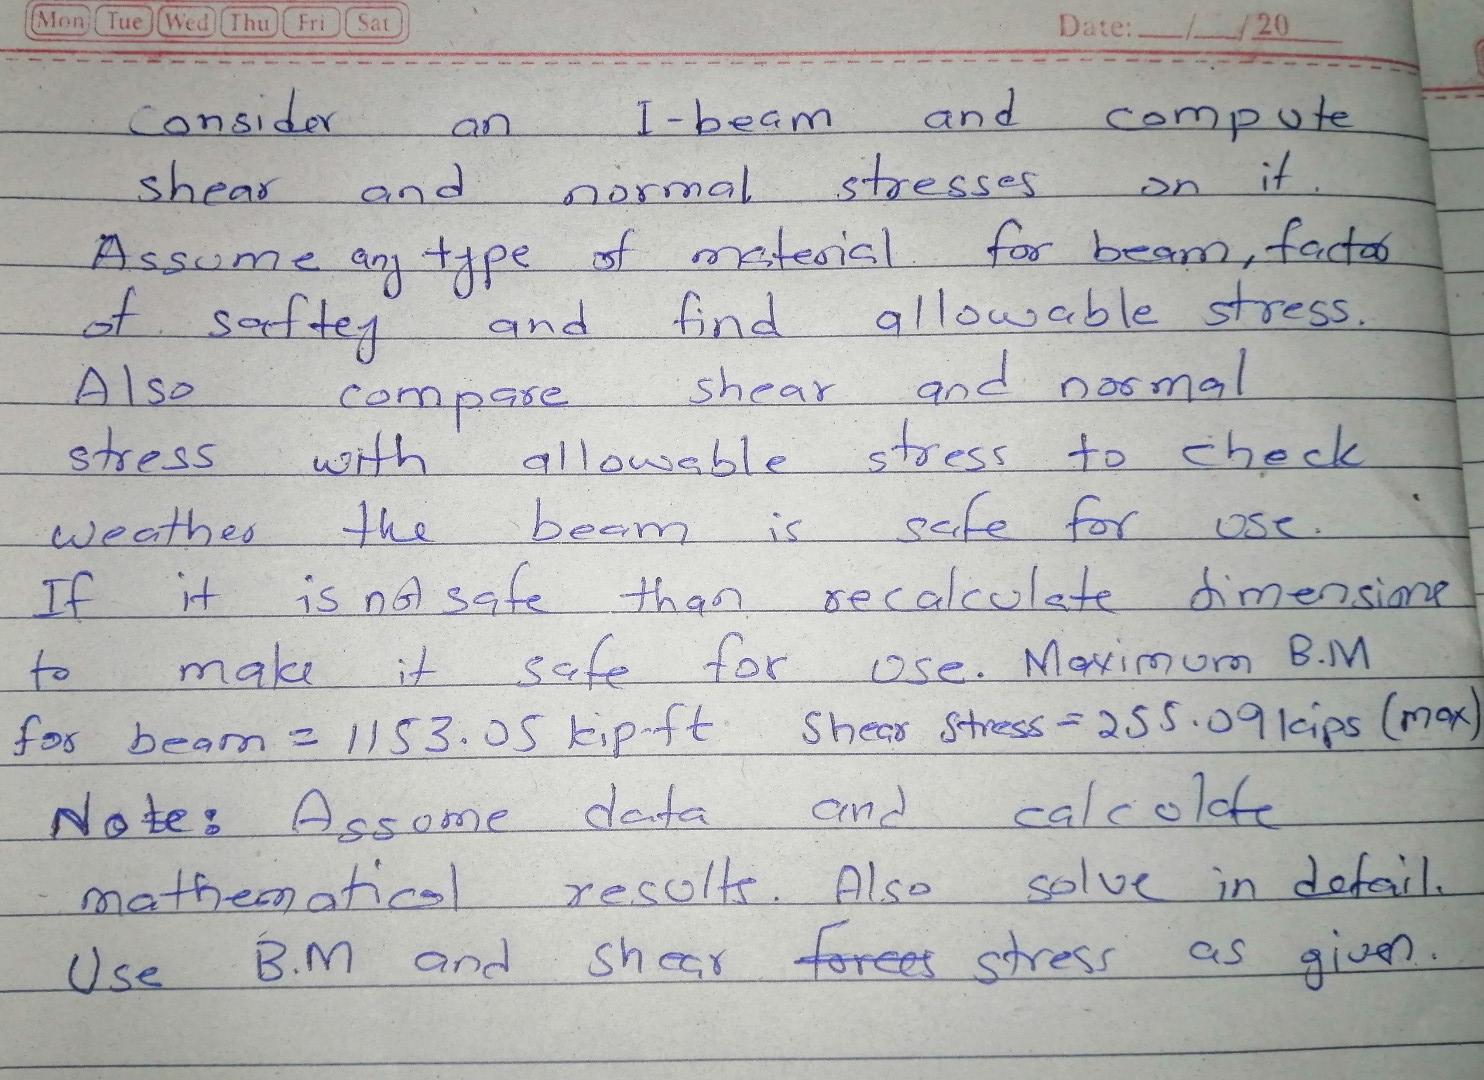 Mon Tue Wed Thu Fri Sat Date: __/__/20__
Consider an I-beam and compute
shear and normal stresses on it.
Assume any type of material for beam, factor
of saftey and find allowable stress.
Also compare shear and normal
stress with allowable stress to check
weather the beam is safe for use.
If it is not safe than recalculate dimensions
to make it safe for use. Maximum B.M
for beam = 1153.05 kip-ft Shear stress = 255.09 kips (max)
Note: Assume data and calculate
mathematical results. Also solve in detail.
Use B.M and shear forces stress as given.